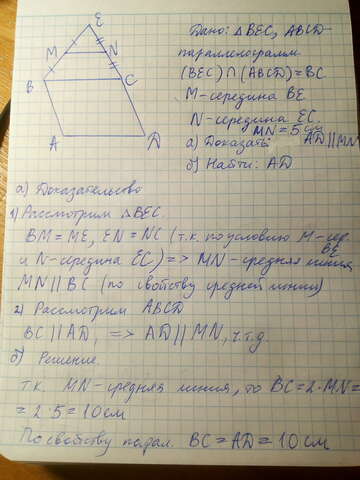 E
M
N
B
C
A
D
Дано: △BEC, ABCD
параллелограмм
(BEC)∩(ABCD)=BC
M-середина BE
N-середина EC.
MN=5см
а) Доказать AD||MN
б) Найти: AD
а) Доказательство
1) Рассмотрим △BEC.
BM=ME, EN=NC (т.к. по условию M-сер. BE
и N-середина EC) => MN-средняя линия
MN||BC (по свойству средней линии)
2) Рассмотрим ABCD
BC||AD, => AD||MN, ч.т.д.
б) Решение.
т.к. MN-средняя линия, то BC=2·MN=
=2·5=10см
По свойству парал. BC=AD=10см